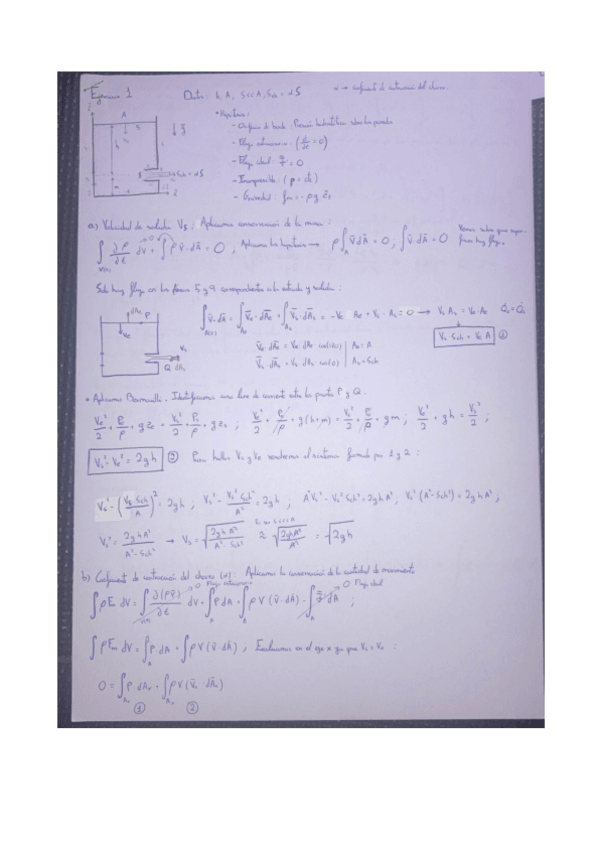 Ejercicio 1
Datos: h, A, S<<A, Sch = αS
α → Coeficiente de contracción del chorro.
A
• Hipótesis:
- Orificio de borda: Presión hidrostática sobre las paredes
- Flujo estacionario: (∂/∂t = 0)
- Flujo ideal: = 0
- Incompresible: (ρ = cte)
- Gravedad: fm = -ρg
a) Velocidad de salida Vs: Aplicamos conservación de la masa:
∫ ∂ρ/∂t dV + ∫ ρ v̄·dĀ = 0 ; Aplicamos las hipótesis → ρ∫_A v̄·dĀ = 0 ; ∫ v̄·dĀ = 0
hay flujo.
Solo hay flujo en los planos S y A correspondientes a la entrada y salida:
∫ v̄·dĀ = ∫ v̄e·dĀe + ∫ v̄s·dĀs = -Ve·Ae + Vs·As = 0 → Vs As = Ve·Ae
Vs·Sch = Ve A ①
v̄e·dĀe = Ve·dAe cos(180) | Ae = A
v̄s·dĀs = Vs·dAs cos(0) | As = Sch
• Aplicamos Bernoulli. Identificamos una línea de corriente entre los puntos P y Q.
Ve²/2 + Pe/ρ + gze = Vs²/2 + Ps/ρ + gzs ; Ve²/2 + P/ρ + g(h+m) = Vs²/2 + P/ρ + gm ; Ve²/2 + gh = Vs²/2 ;
Vs² - Ve² = 2gh ② Para hallar Vs y Ve resolvemos el sistema formado por 1 y 2:
Vs² - (Vs Sch/A)² = 2gh ; Vs² - Vs² Sch²/A² = 2gh ; A²Vs² - Vs² Sch² = 2ghA² ; Vs²(A² - Sch²) = 2ghA² ;
Vs² = 2ghA²/(A² - Sch²) → Vs = √(2ghA²/(A² - Sch²)) ≈ √(2ghA²/A²) = √2gh
b) Coeficiente de contracción del chorro (α): Aplicamos la conservación de la cantidad de movimiento
0 Flujo estacionario
0 Flujo ideal
∫ ρFm dV = ∫ ∂(ρv̄)/∂t dV + ∫ P·dA + ∫ ρV(v̄·dĀ) - ∫ dĀ ;
∫ ρFm dV = ∫ P·dA + ∫ ρV(v̄·dĀ) ; Evaluamos en el eje x ya que Vs = Vx :
0 = ∫ P·dAx + ∫ ρV(v̄s·dĀs)
① ②